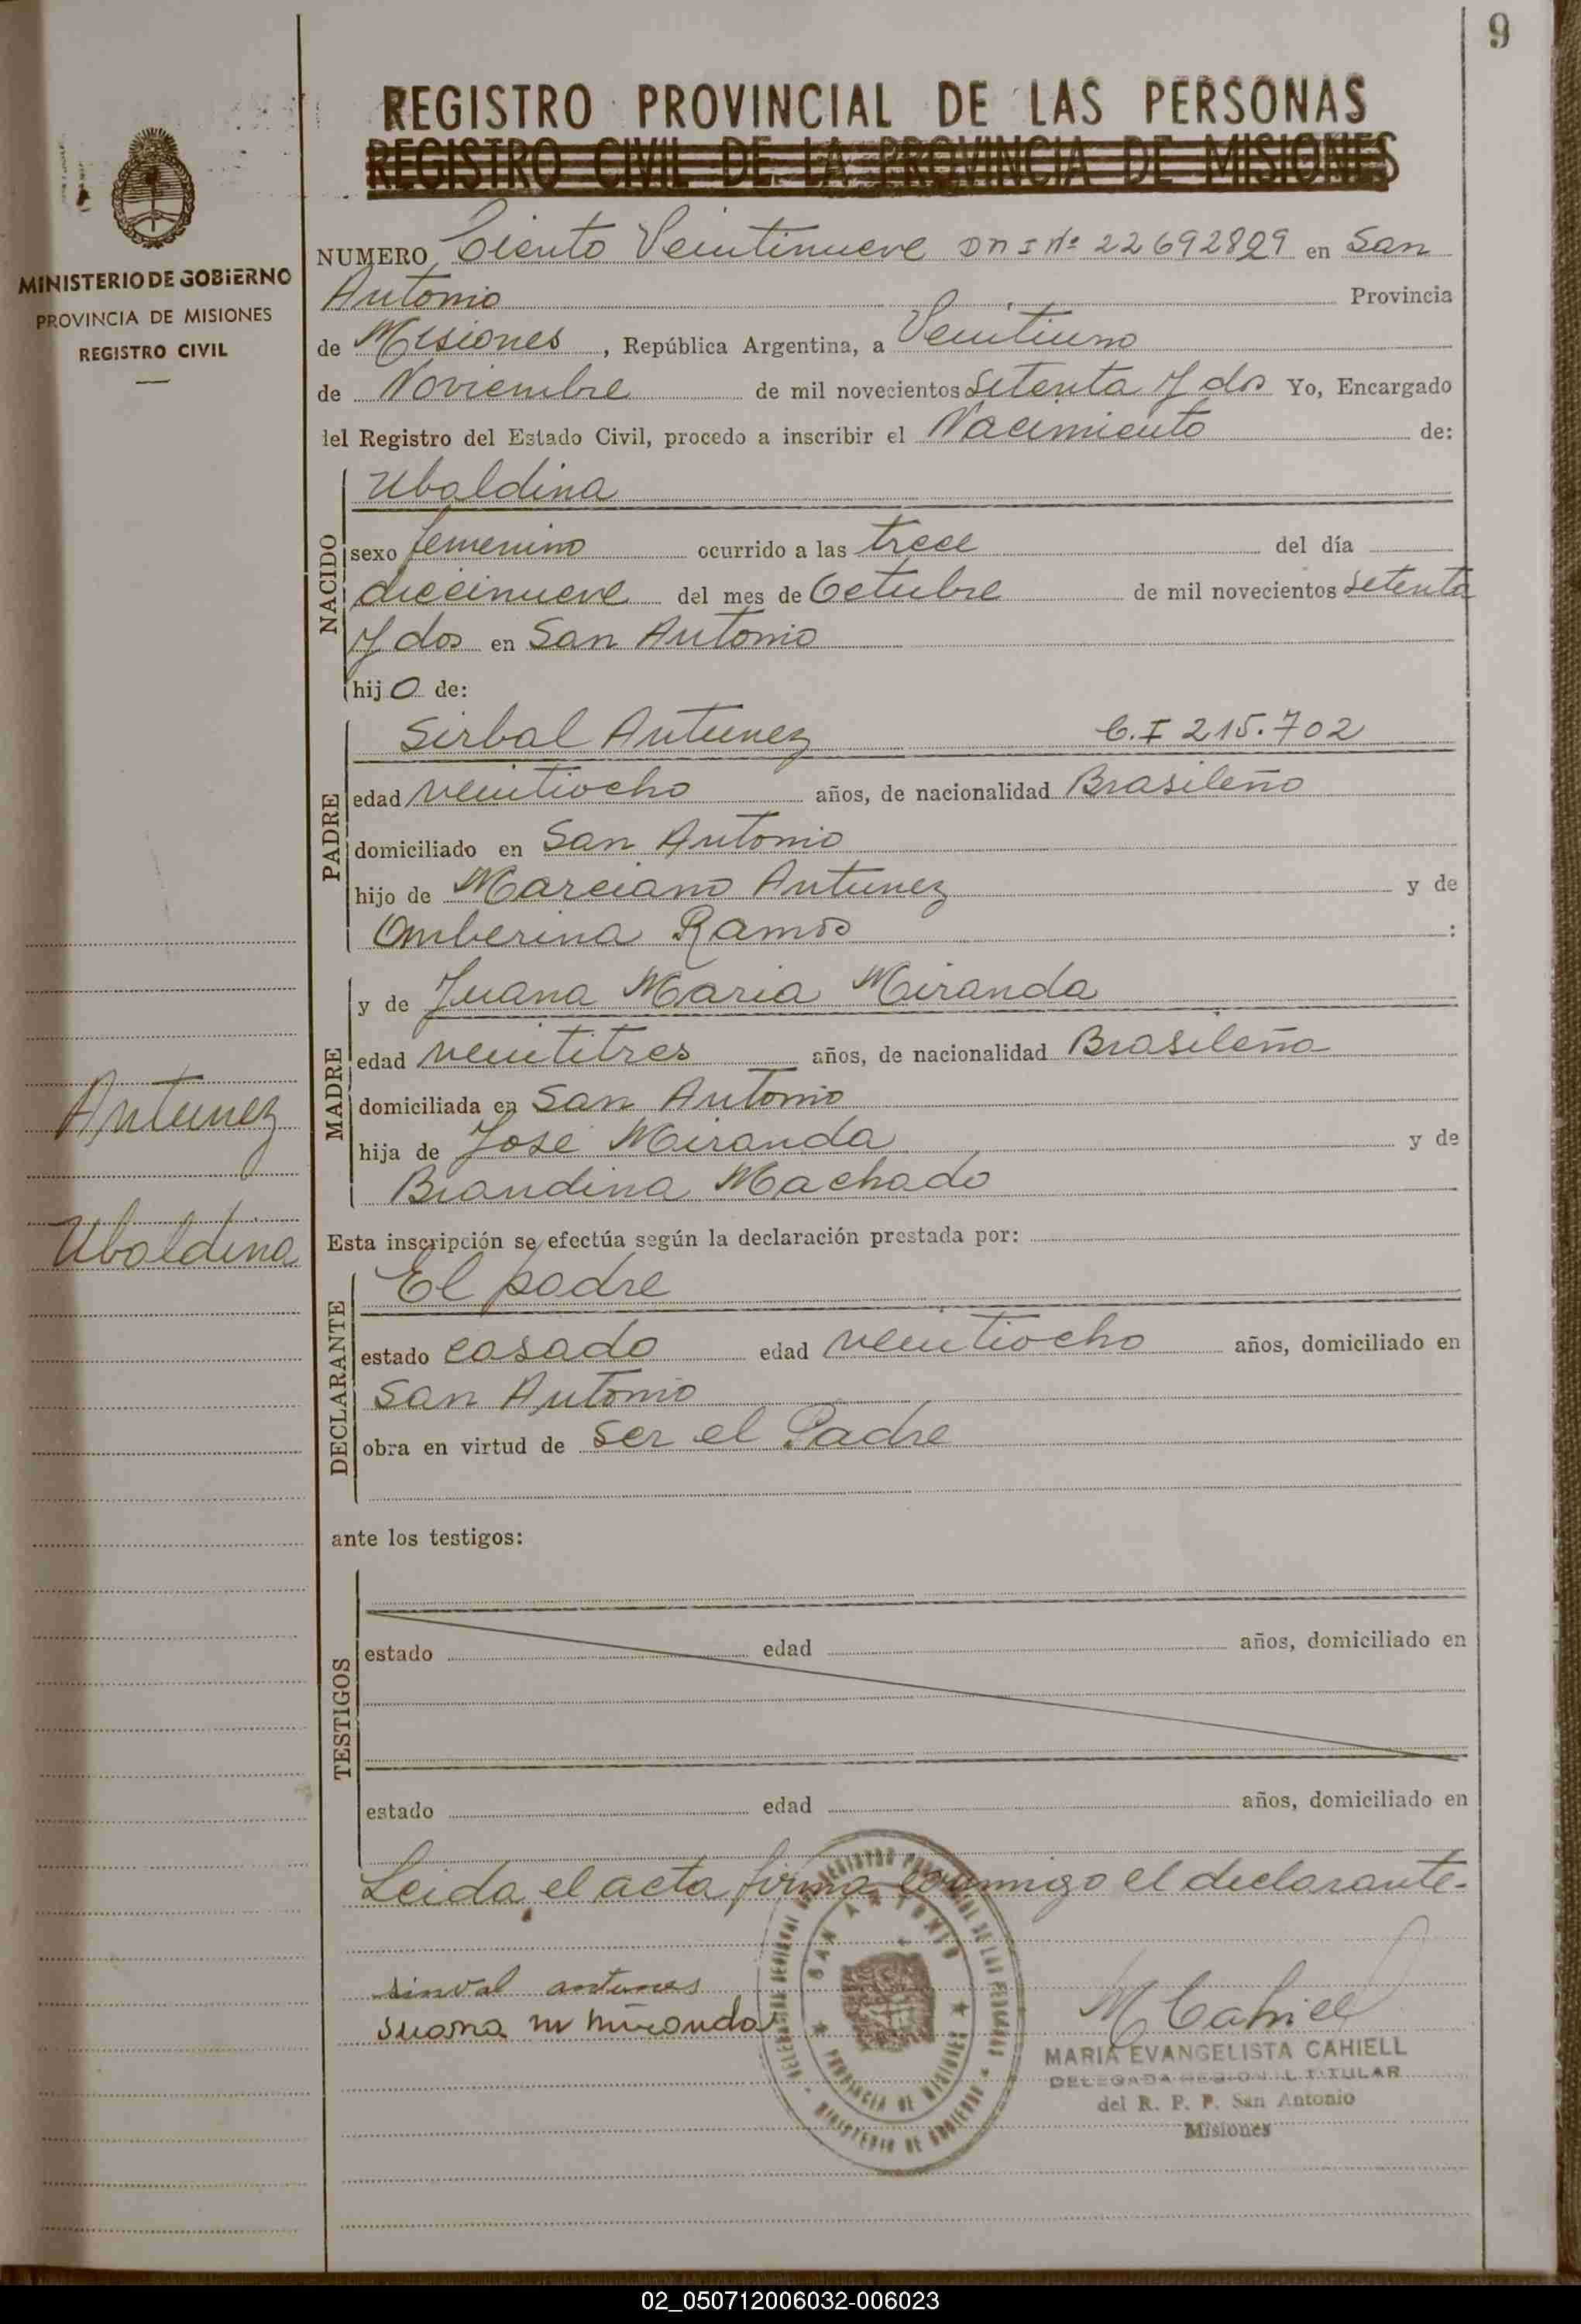 9
REGISTRO PROVINCIAL DE LAS PERSONAS
REGISTRO CIVIL DE LA PROVINCIA DE MISIONES
MINISTERIO DE GOBIERNO
PROVINCIA DE MISIONES
REGISTRO CIVIL
NUMERO Ciento Veintinueve DNI Nº 22692829 en San
Antonio Provincia
de Misiones, República Argentina, a Veintiuno
de Noviembre de mil novecientos Setenta y dos Yo, Encargado
del Registro del Estado Civil, procedo a inscribir el Nacimiento de:
NACIDO
Ubaldina
sexo femenino ocurrido a las trece del día
diecinueve del mes de Octubre de mil novecientos setenta
y dos en San Antonio
hijo de:
PADRE
Sirbal Antunez C.I 215.702
edad veintiocho años, de nacionalidad Brasileño
domiciliado en San Antonio
hijo de Marciano Antunez y de
Omberina Ramos :
MADRE
y de Juana Maria Miranda
edad veintitres años, de nacionalidad Brasileña
domiciliada en San Antonio
hija de Jose Miranda y de
Brandina Machado
Antunez
Ubaldina
Esta inscripción se efectúa según la declaración prestada por:
DECLARANTE
El padre
estado casado edad veintiocho años, domiciliado en
San Antonio
obra en virtud de ser el Padre
ante los testigos:
TESTIGOS
estado edad años, domiciliado en
estado edad años, domiciliado en
Leida el acta firma conmigo el declarante.
sinval antunes
Juana m miranda
SAN ANTONIO
PROVINCIA DE MISIONES
MINISTERIO DE GOBIERNO
M Cahiell
MARIA EVANGELISTA CAHIELL
DELEGADA REGIONAL TITULAR
del R. P. P. San Antonio
Misiones
02_050712006032-006023